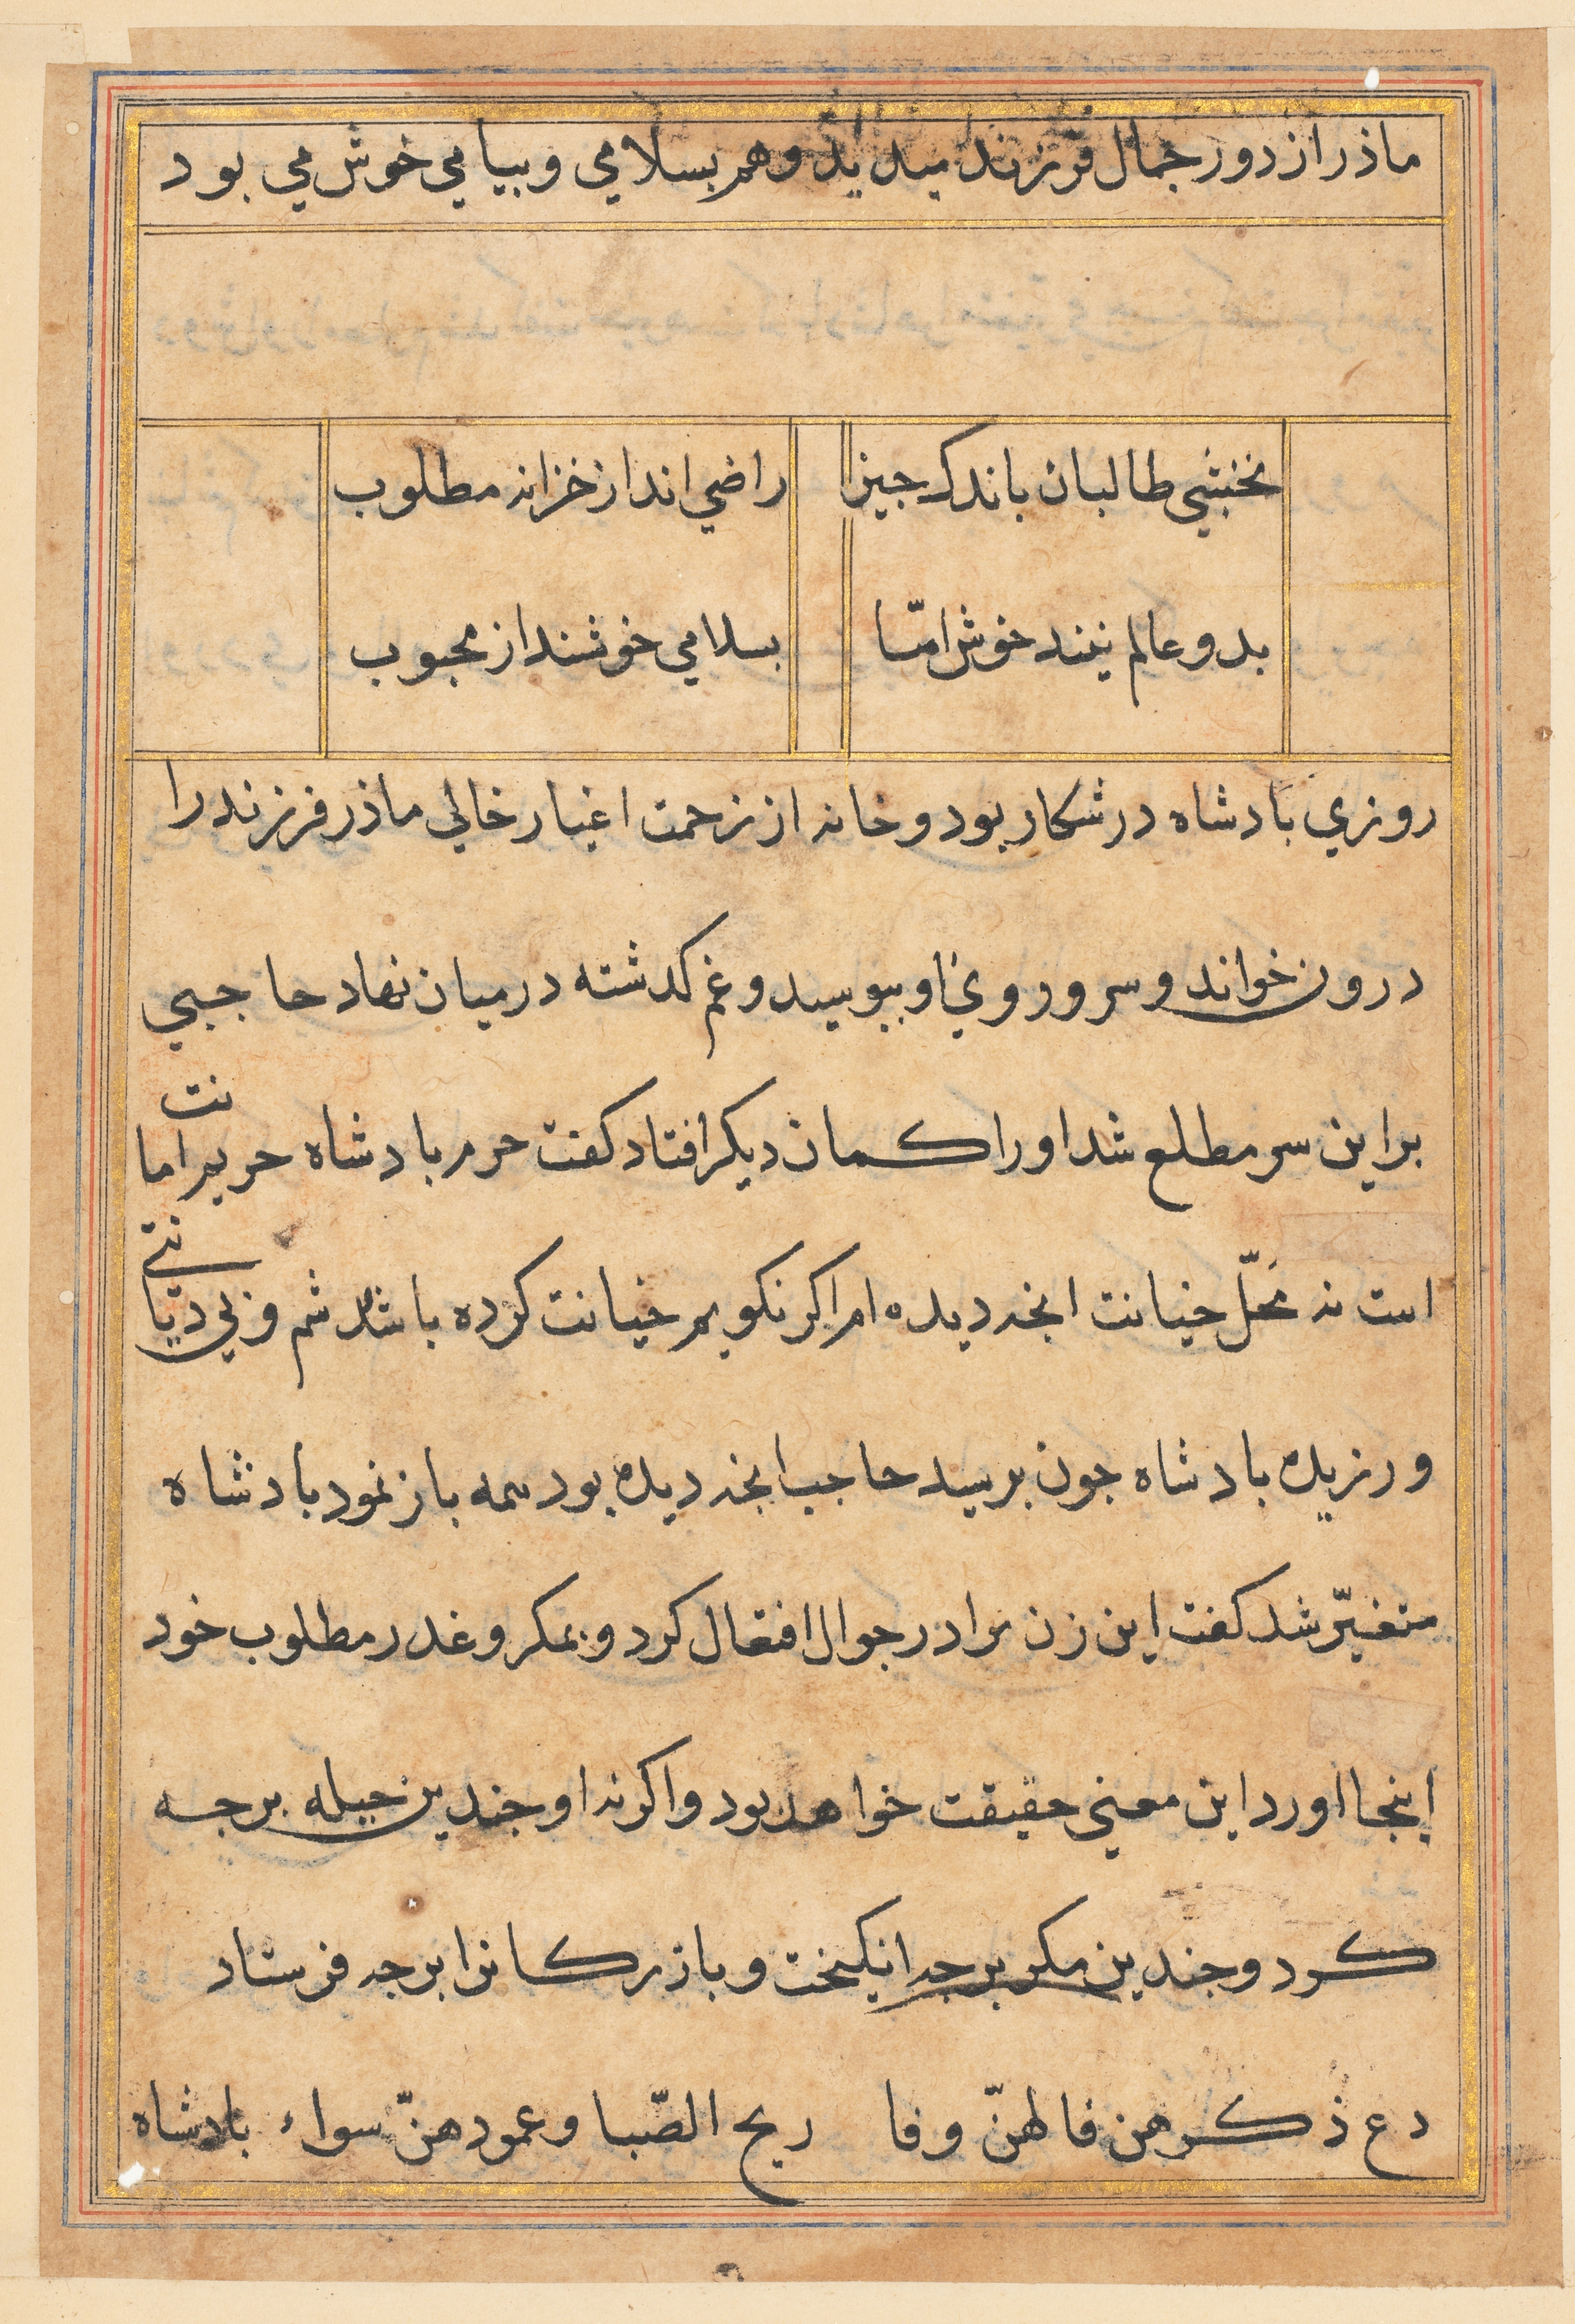 ماذر از دور جمال فرزند میدید و هم بسلامي و بیامي خوش مي بود
نخشبي طالبان باندك جیز
راضي اند از خزانه مطلوب
بدو عالم نیند خوش امّا
بسلامي خوشند از محبوب
روزي بادشاه در شکار بود و خانه از زحمت اغیار خالي ماذر فرزند را
درون خواند و سر و روي او ببوسید و غم کدشته درمیان نهاد حاجبي
بر این سر مطلع شد او را کمان دیکر افتاد کفت حرم بادشاه حریم امانت
است نه محلّ خیانت انجه دیده ام اکر نکویم خیانت کرده باشم و بي دیانتي
ورزیده بادشاه جون برسید حاجب انجه دیده بود همه باز نمود بادشاه
متغیّر شد کفت این زن مرا در جوال افتعال کرد و بمکر و غدر مطلوب خود
اینجا اورد این معني حقیقت خواهد بود و اکر نه او جندین حیله برجه
کرد و جندین مکر برجه انکیخت و بازرکانرا برجه فرستاد
دع ذكرهن فما لهنّ وفا ريح الصّبا وعهودهنّ سواء بادشاه